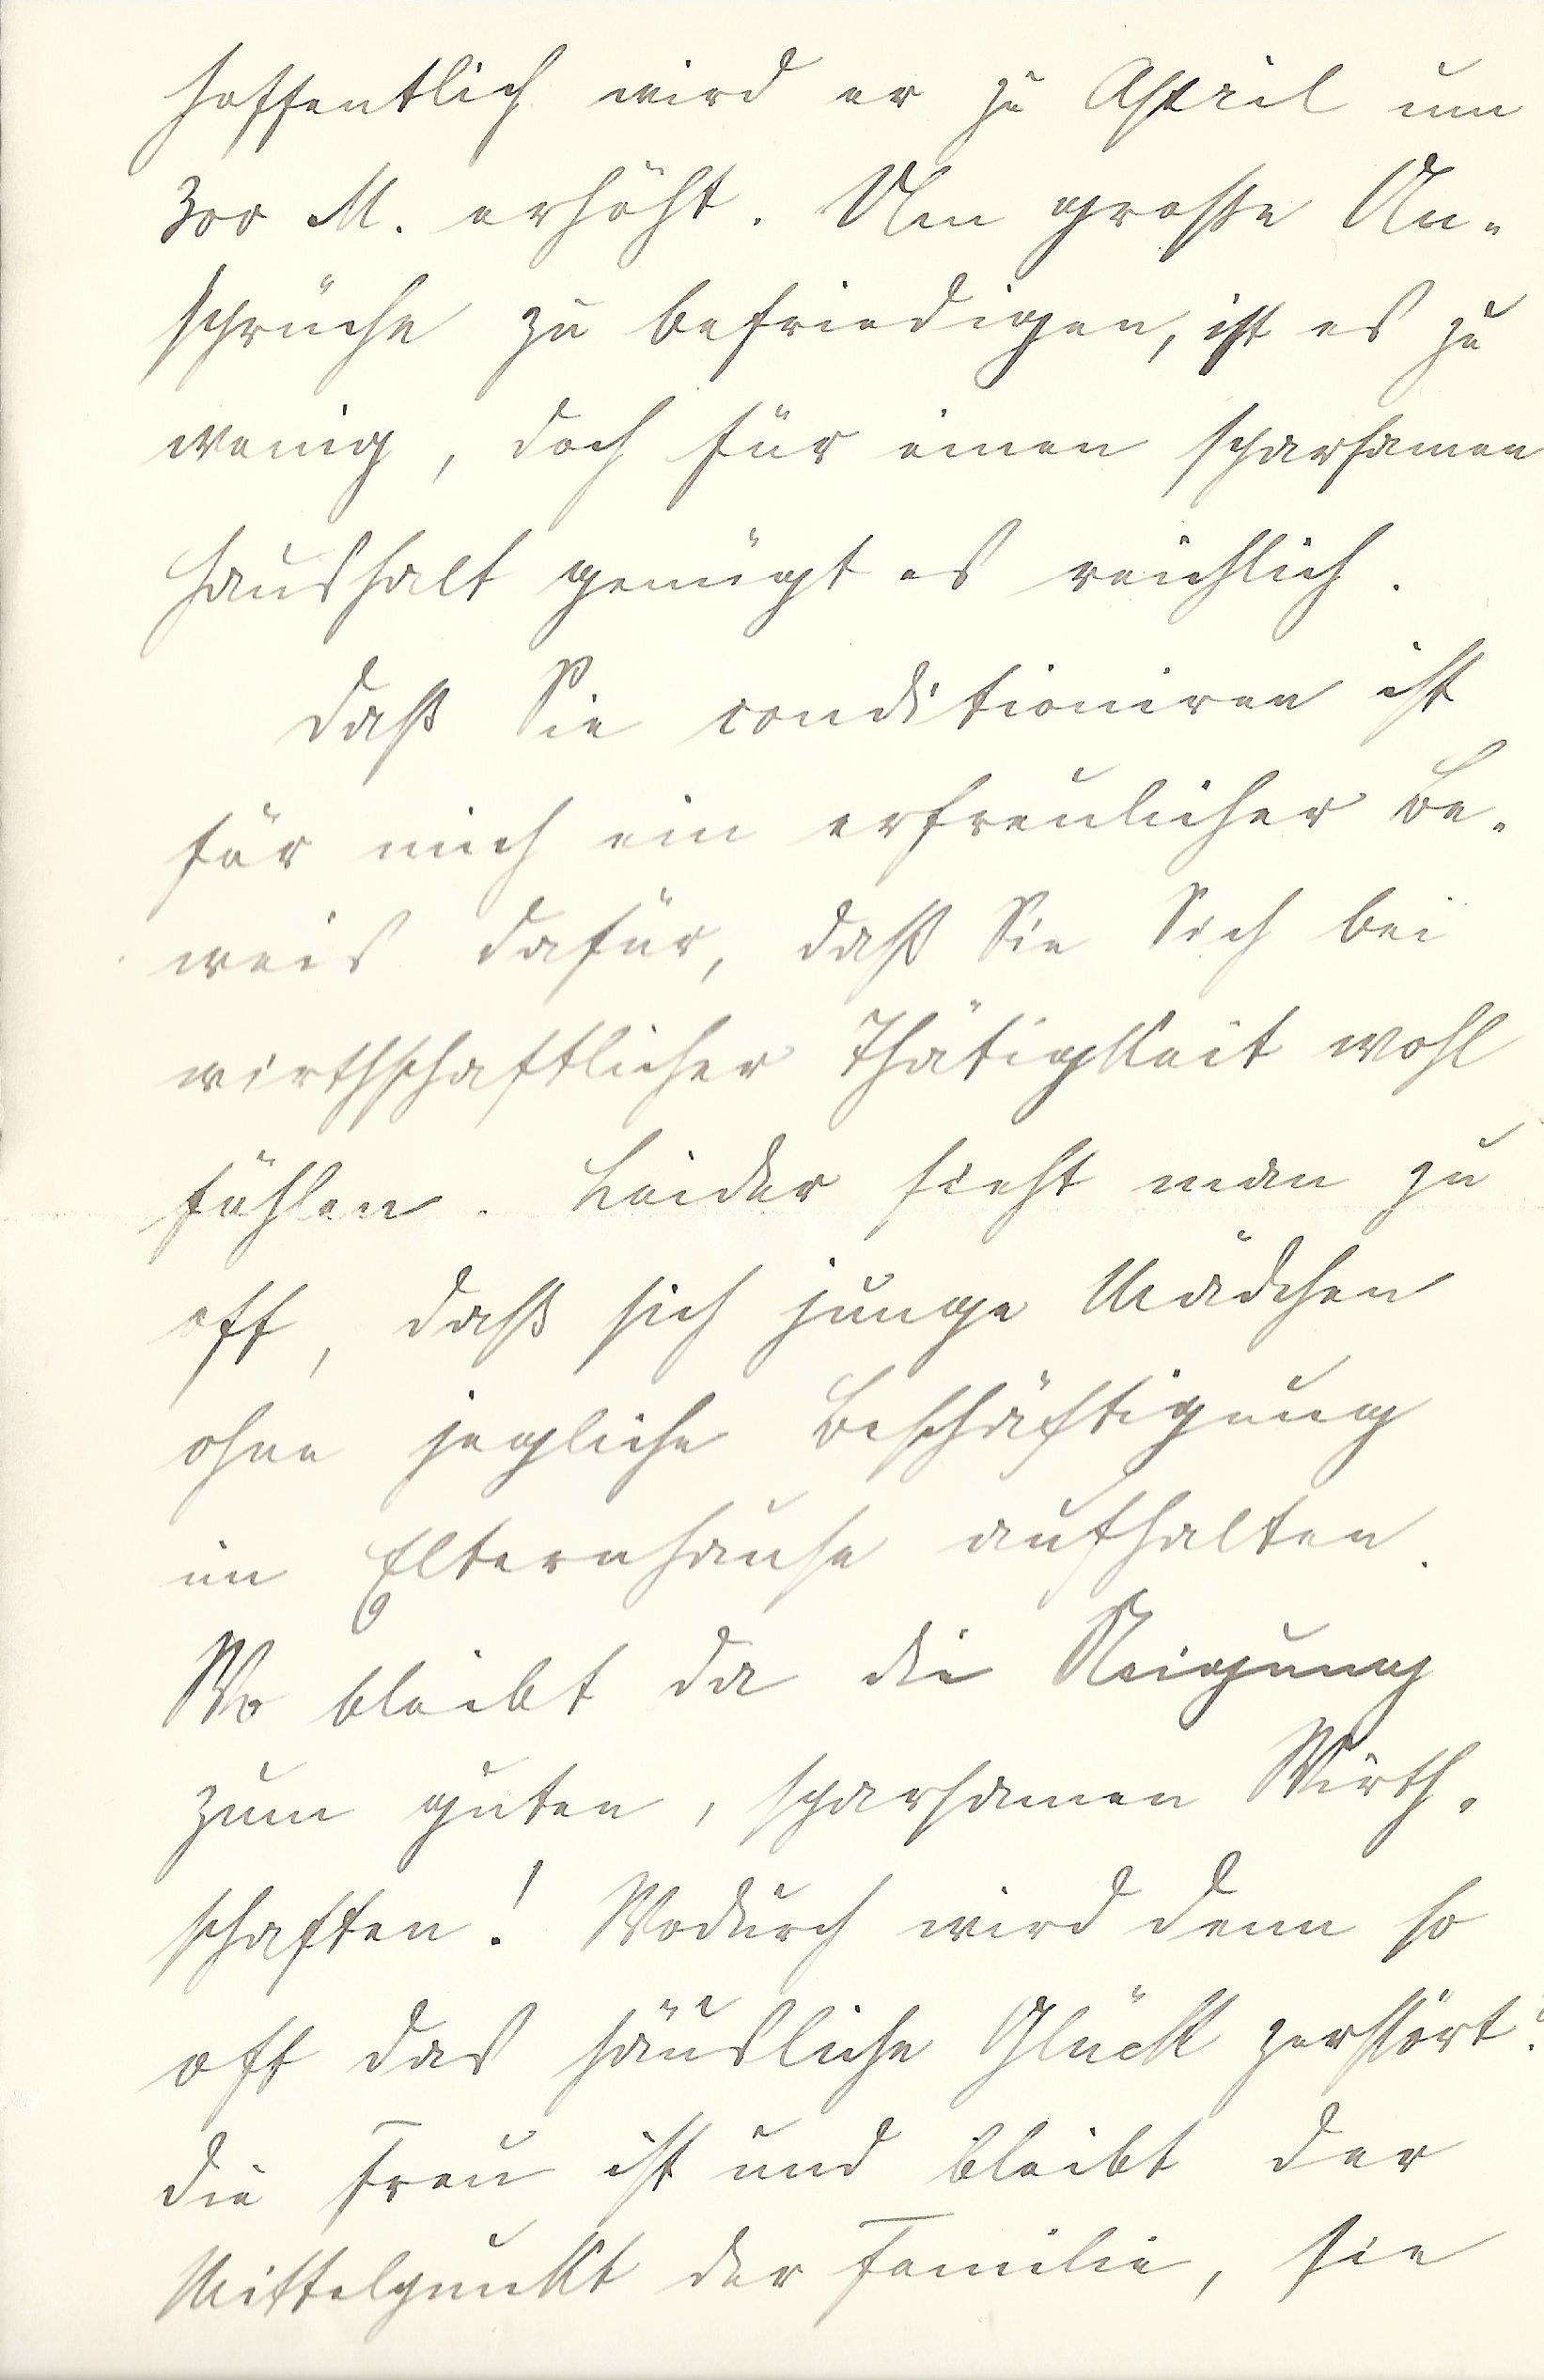 hoffentlich wird er zu April um
300 M. erhöht. Um große An-
sprüche zu befriedigen, ist es zu
wenig, doch für einen sparsamen
Haushalt genügt es reichlich.
Daß Sie conditioniren ist
für mich ein erfreulicher Be-
weis dafür, daß Sie Sich bei
wirthschaftlicher Thätigkeit wohl
fühlen. Leider sieht man zu
oft, daß sich junge Mädchen
ohne jegliche Beschäftigung
im Elternhause aufhalten.
Wo bleibt da die Neigung
zum guten, sparsamen Wirth-
schaften! Wodurch wird denn so
oft das häusliche Glück zerstört?
Die Frau ist und bleibt der
Mittelpunkt der Familie, sie